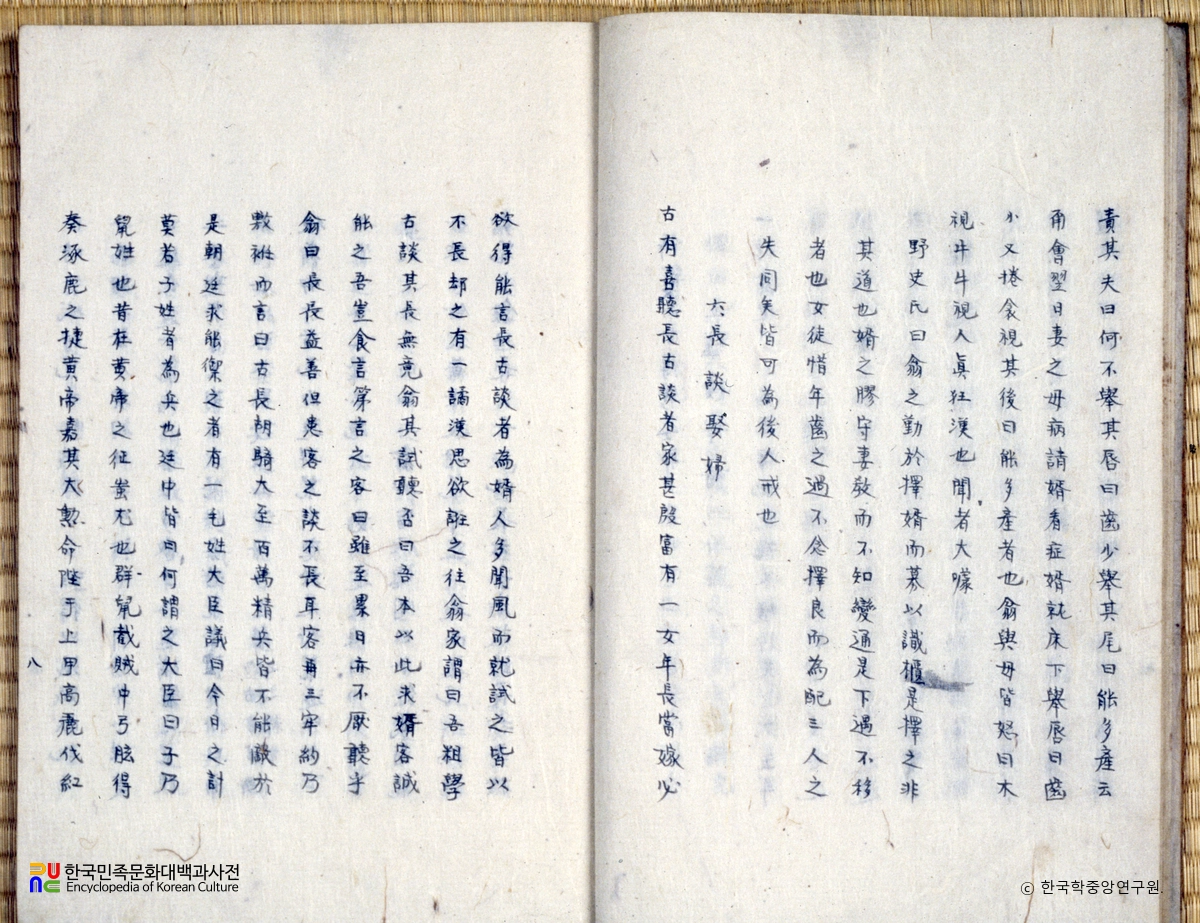 責其夫曰何不擧其唇曰齒少擧其尾曰能多產云
甬會翌日妻之母病請婿看症婿就床下擧唇曰齒
少又捲衾視其後曰能多產者也翁與母皆怒曰木
視牛牛視人眞狂漢也聞者大噱
野史氏曰翁之勤於擇婿而募以識櫃是擇之非
其道也婿之膠守妻敎而不知變通是下遇不移
者也女徒惜年齒之過不念擇良而為配三人之
失同矣皆可為後人戒也
六長談娶婦
古有喜聽長古談者家甚殷富有一女年長當嫁必
欲得能言長古談者為婿人多聞風而就試之皆以
不長却之有一譎漢思欲誑之往翁家謂曰吾粗學
古談其長無竟翁其試聽否曰吾本以此求婿客誠
能之吾豈食言第言之客曰雖至累日亦不厭聽乎
翁曰長長益善但患客之談不長耳客再三牢約乃
敷袵而言曰古長朝騎大至百萬精兵皆不能敵於
是朝廷求能禦之者有一毛姓大臣議曰今日之計
莫若子姓者為兵也廷中皆曰何謂之大臣曰子乃
鼠姓也昔在黃帝之征蚩尤也群鼠截賊中弓眩得
奏涿鹿之捷黃帝嘉其大勲命陞于上甲高鹿伐紅
八
한국민족문화대백과사전
Encyclopedia of Korean Culture
© 한국학중앙연구원